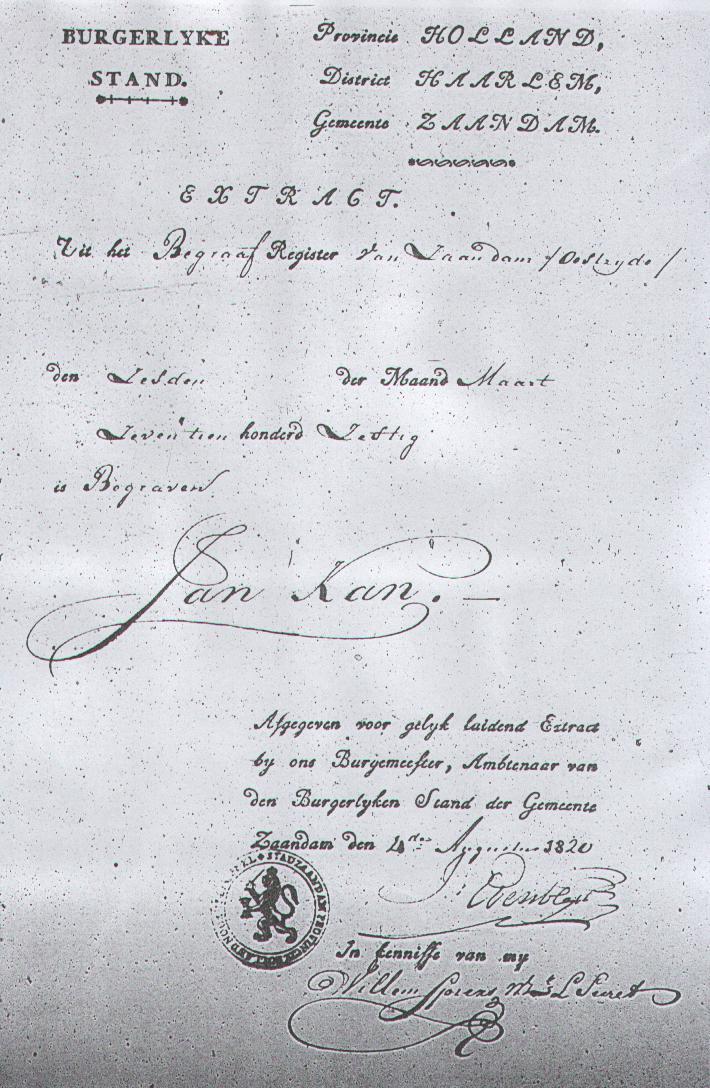 BURGERLYKE
STAND.
Provincie HOLLAND,
District HAARLEM,
Gemeente ZAANDAM.
EXTRACT.
Uit het Begraaf Register van Zaandam /Oostzyde/
den Zesden der Maand Maart
Zeventien honderd Zestig
is Begraven
Jan Kan. —
Afgegeven voor gelyk luidend Extract
by ons Burgemeester, Ambtenaar van
den Burgerlyken Stand der Gemeente
Zaandam den 4den Augustus 1820
STAD ZAANDAM PROVINCIE NOORD HOLLAND
In kennisse van my
Willem